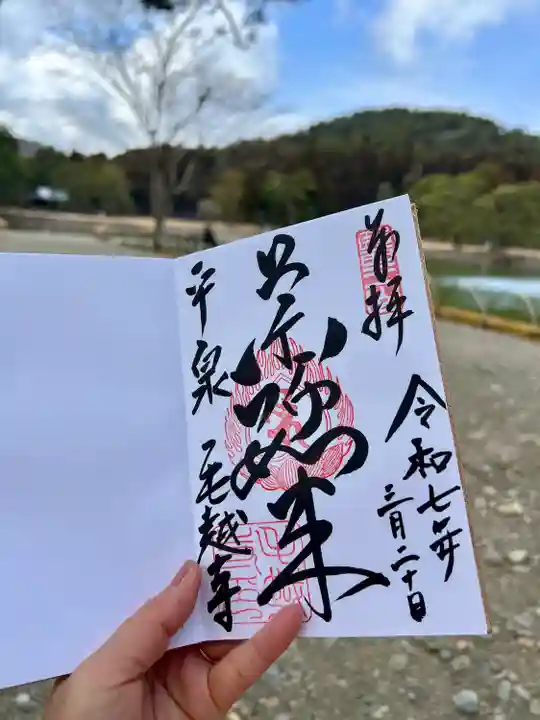 奉拝
令和七年
三月二十日
薬師如来
平泉 毛越寺